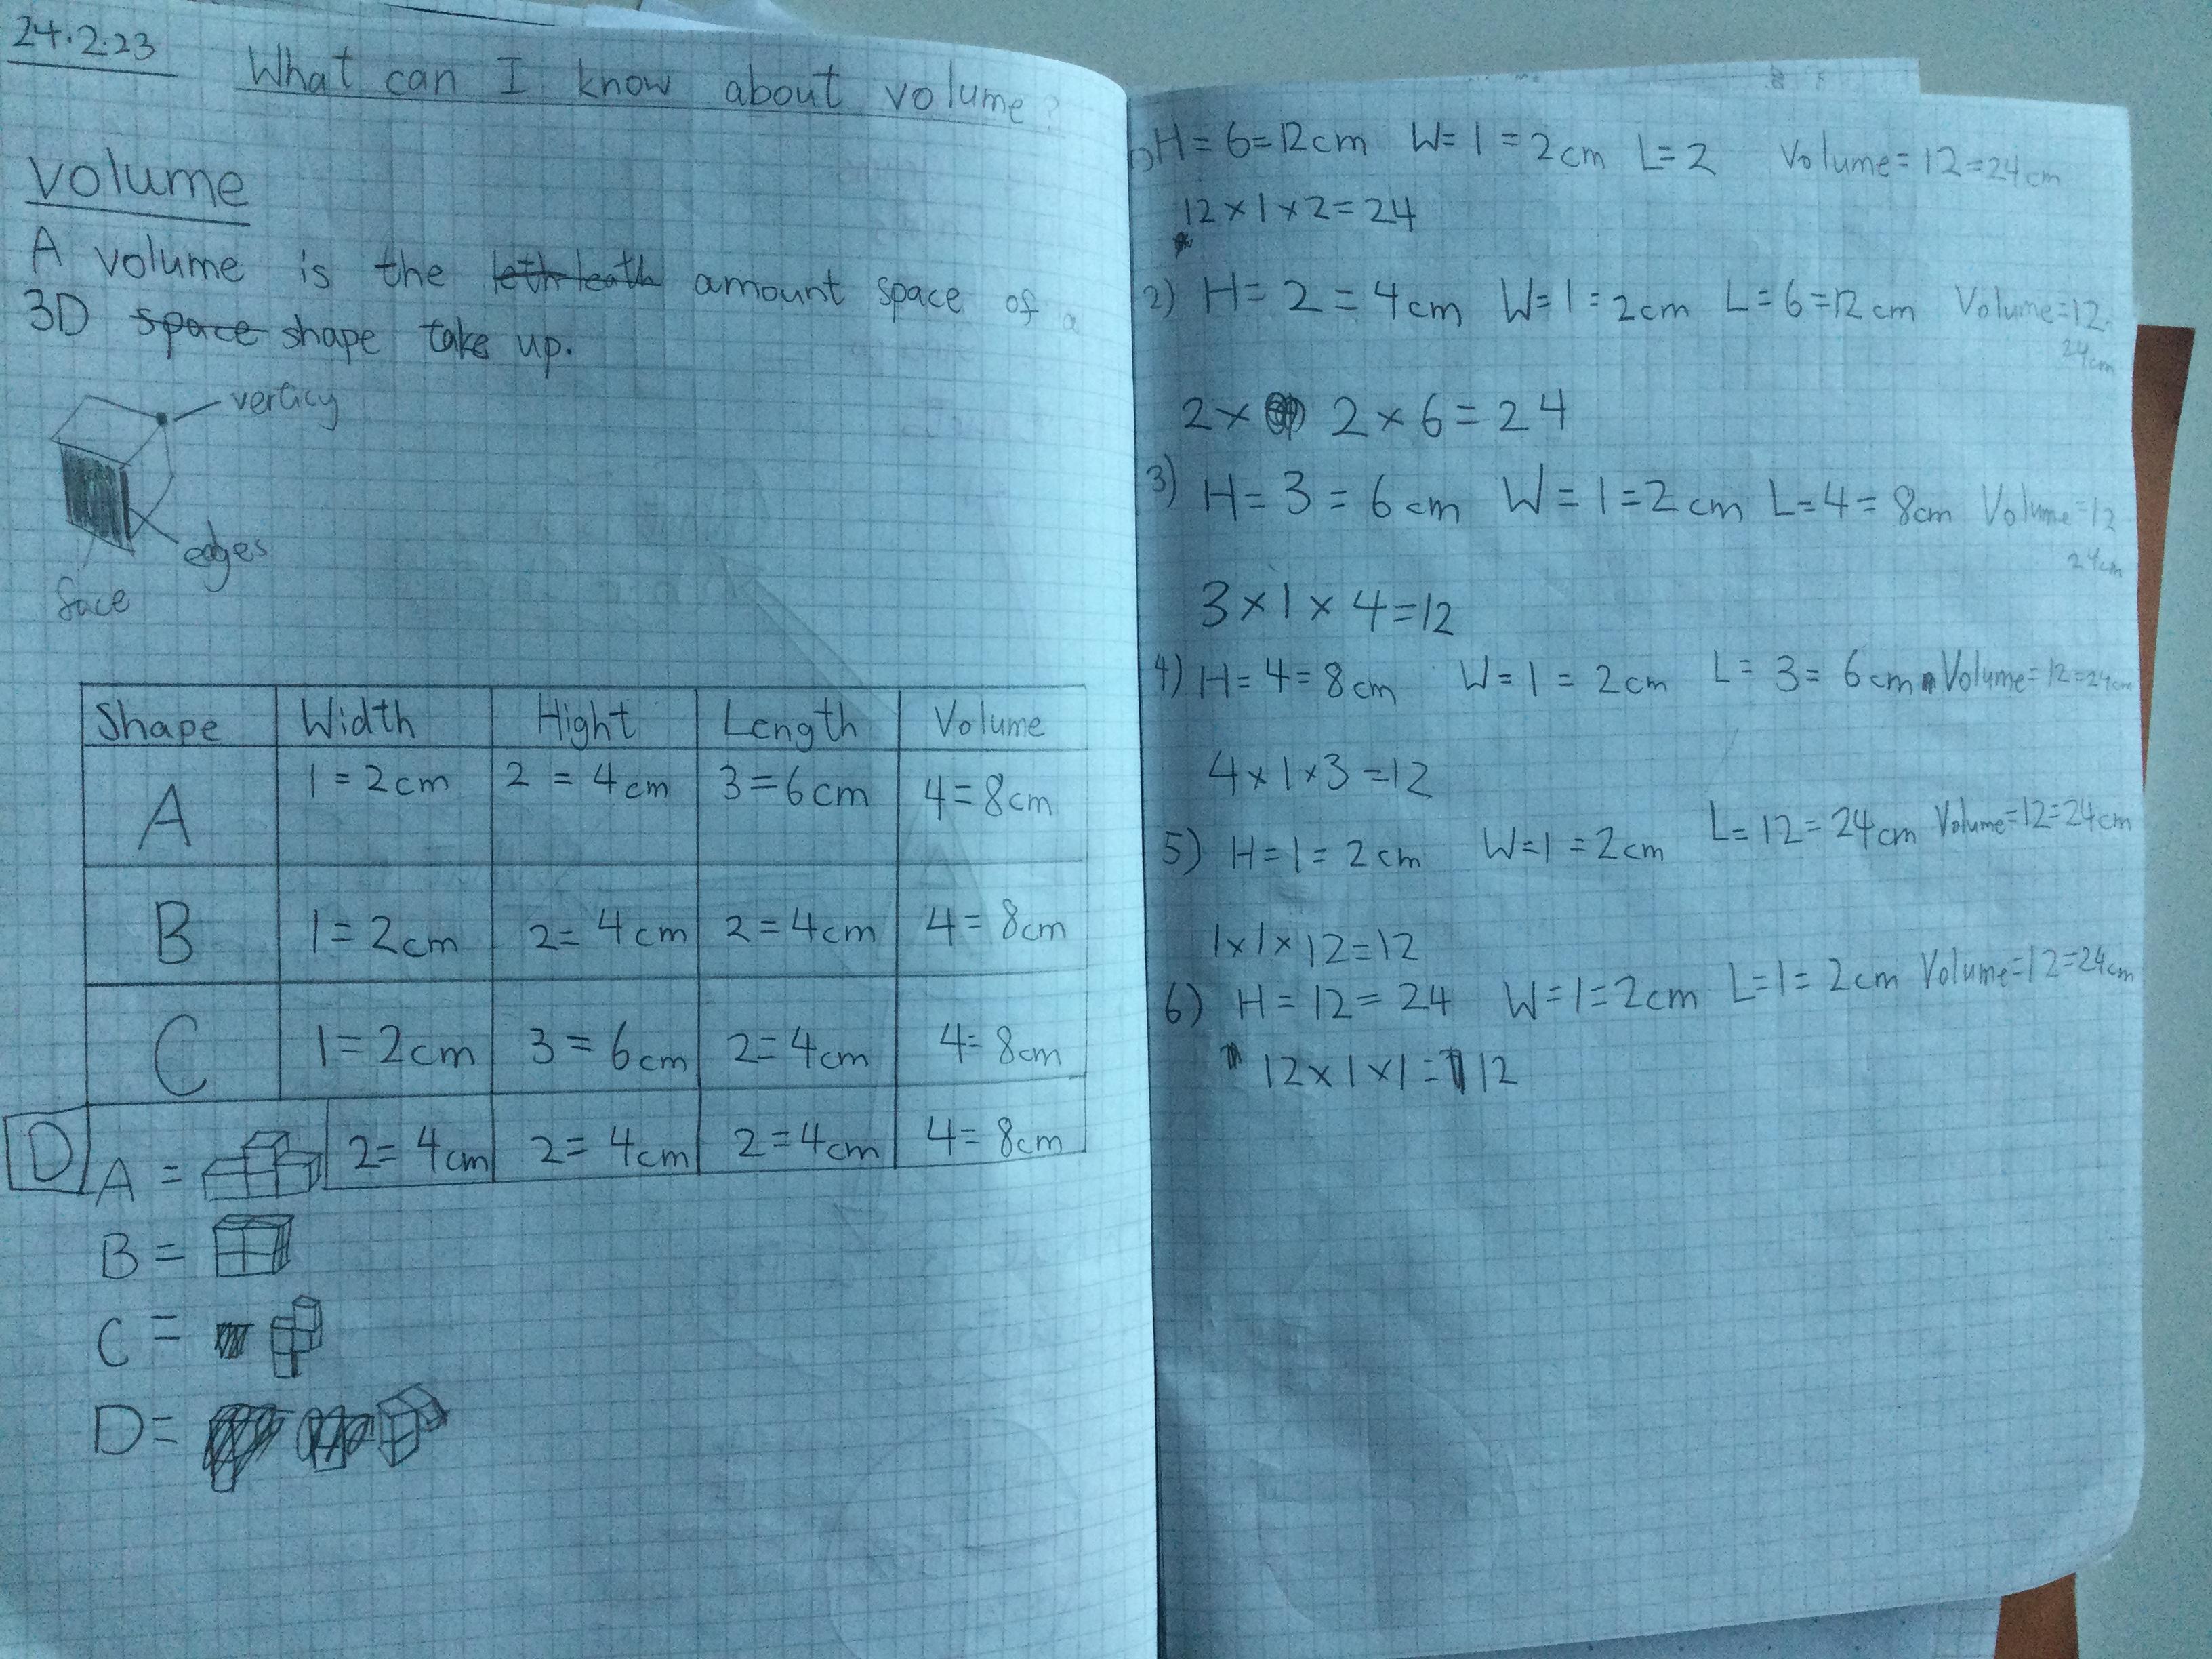 24.2.23
What can I know about volume?
Volume
A volume is the leth leath amount space of a
3D space shape take up.
verticy
edges
face
Shape Width Hight Length Volume
A 1=2cm 2=4cm 3=6cm 4=8cm
B 1=2cm 2=4cm 2=4cm 4=8cm
C 1=2cm 3=6cm 2=4cm 4=8cm
D 2=4cm 2=4cm 2=4cm 4=8cm
A =
B =
C =
D =
1) H=6=12cm W=1=2cm L=2 Volume=12=24cm
12×1×2=24
2) H=2=4cm W=1=2cm L=6=12cm Volume=12=
24cm
2× 2×6=24
3) H=3=6cm W=1=2cm L=4=8cm Volume=12
24cm
3×1×4=12
4) H=4=8cm W=1=2cm L=3=6cm Volume=12=24cm
4×1×3=12
5) H=1=2cm W=1=2cm L=12=24cm Volume=12=24cm
1×1×12=12
6) H=12=24 W=1=2cm L=1=2cm Volume=12=24cm
12×1×1=12